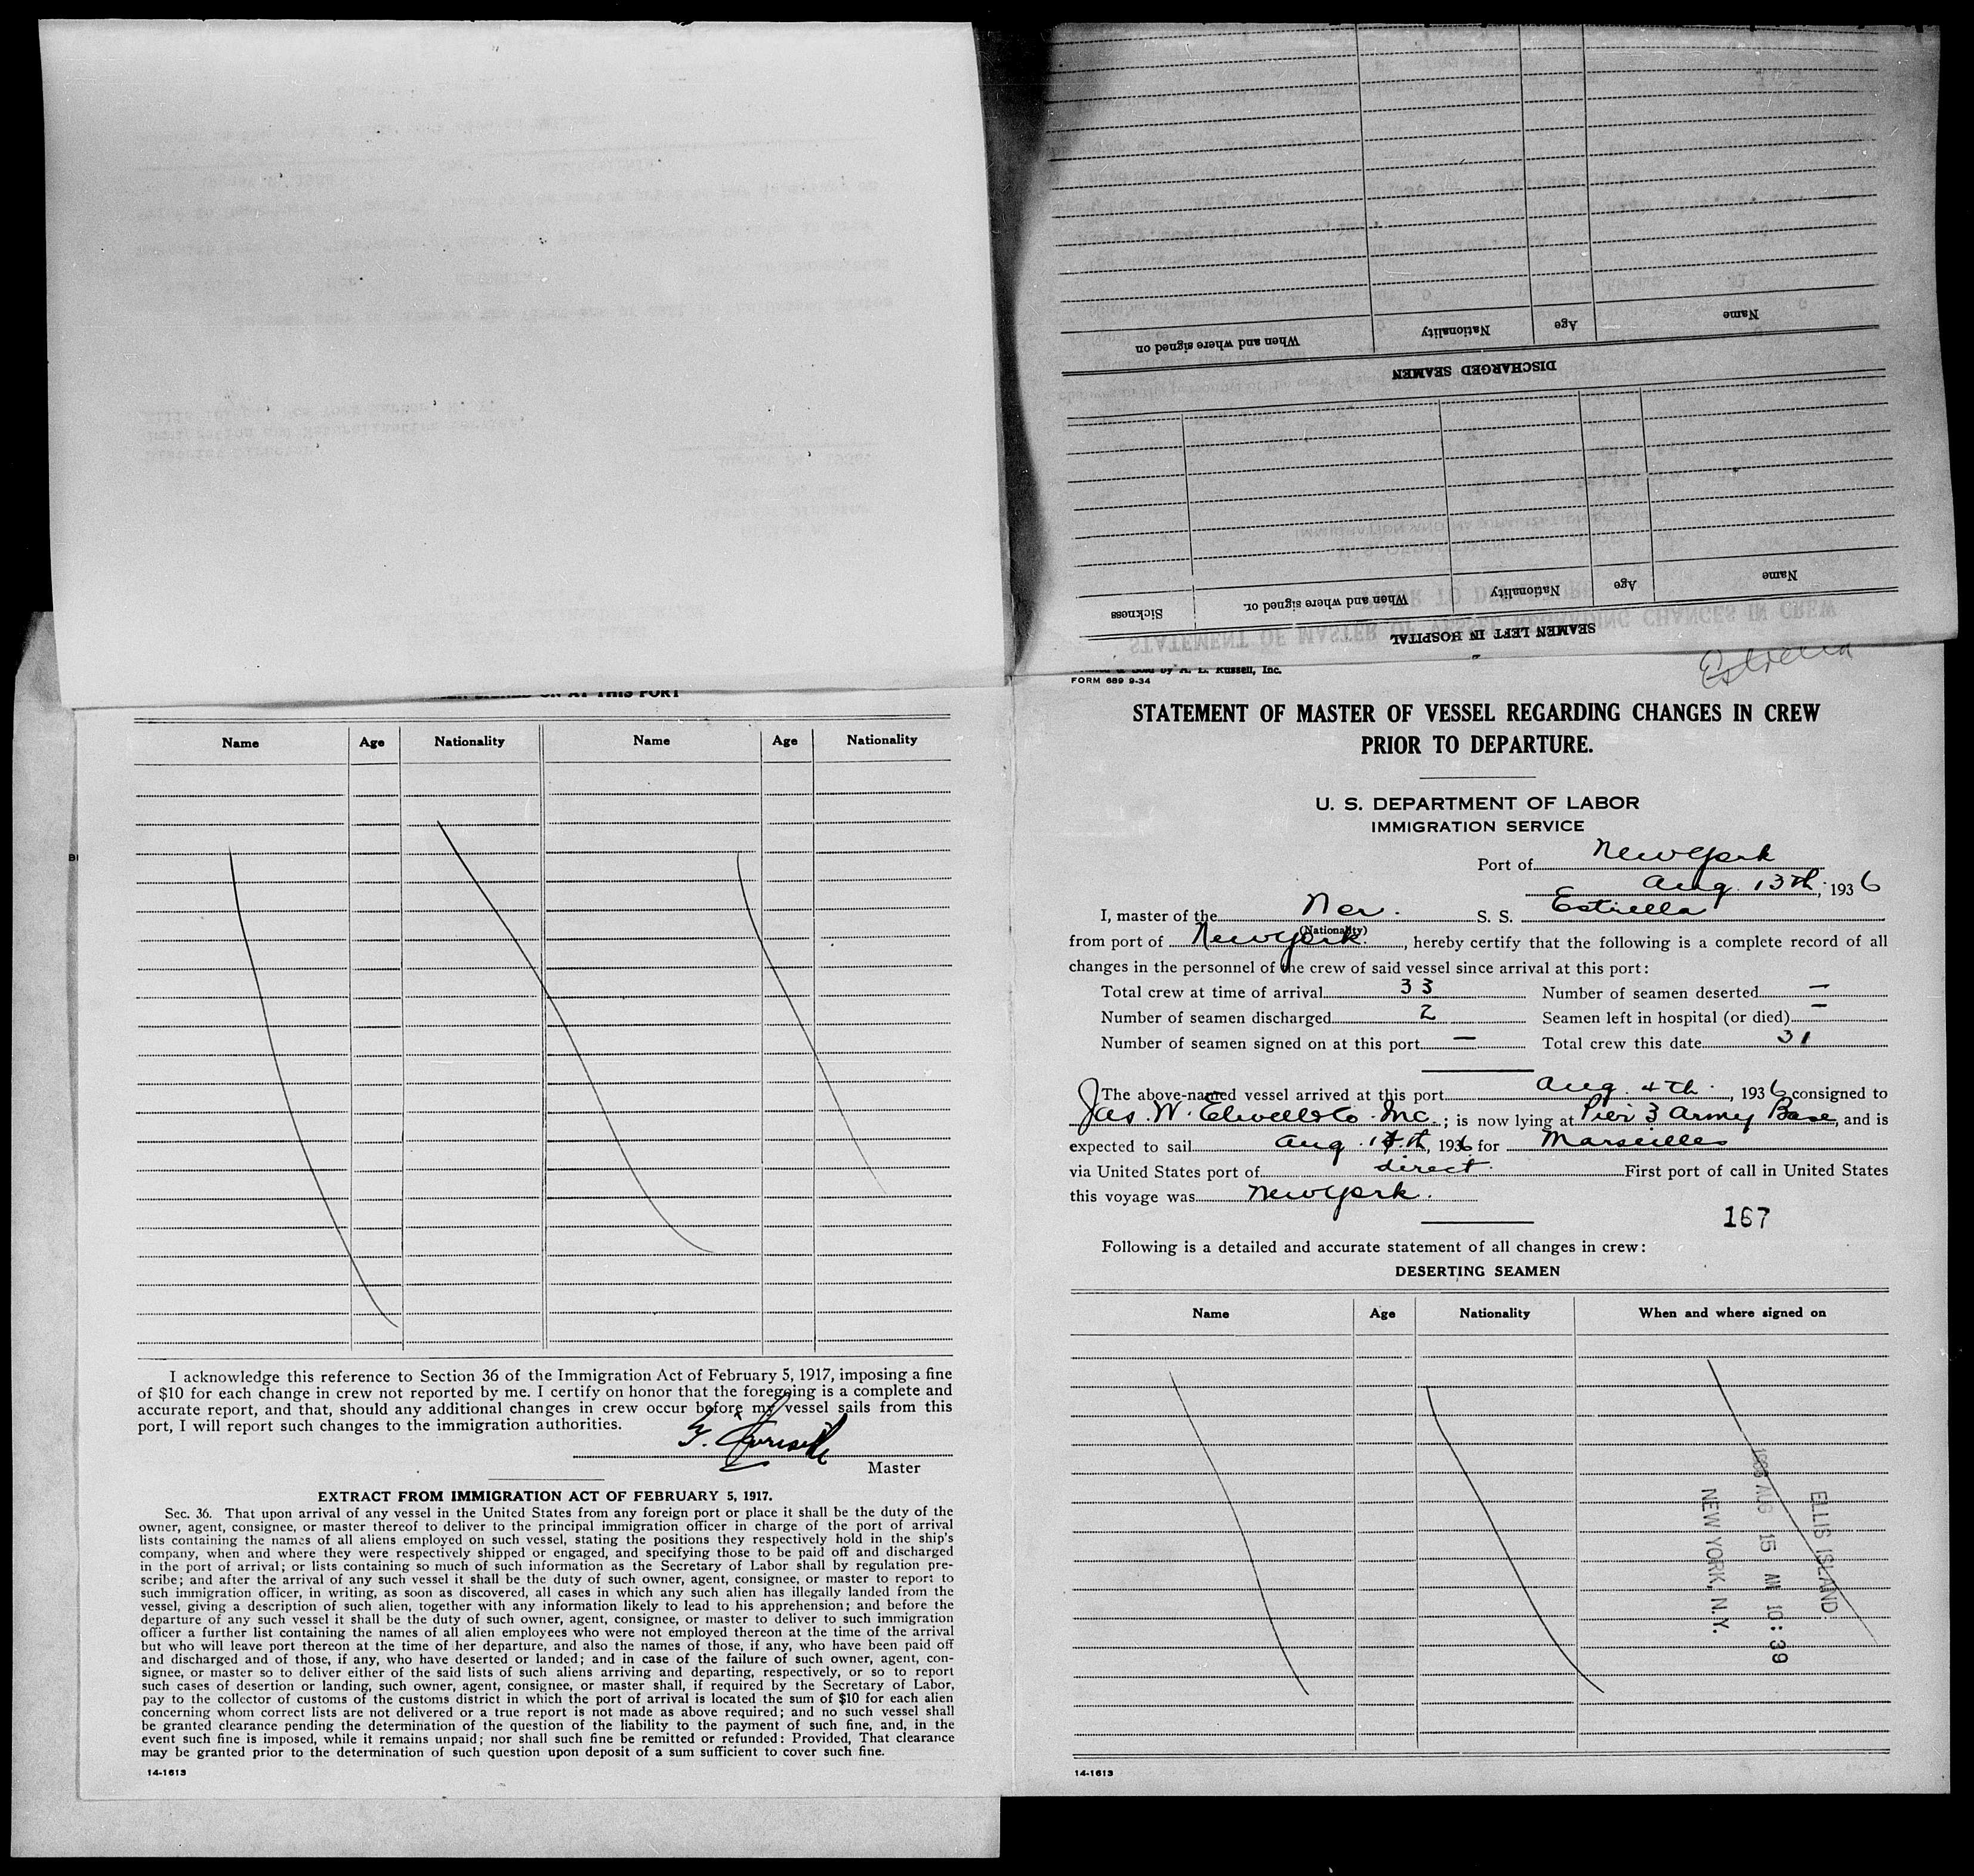 Name Age Nationality Name Age Nationality
I acknowledge this reference to Section 36 of the Immigration Act of February 5, 1917, imposing a fine
of $10 for each change in crew not reported by me. I certify on honor that the foregoing is a complete and
accurate report, and that, should any additional changes in crew occur before my vessel sails from this
port, I will report such changes to the immigration authorities.
Master
EXTRACT FROM IMMIGRATION ACT OF FEBRUARY 5, 1917.
Sec. 36. That upon arrival of any vessel in the United States from any foreign port or place it shall be the duty of the
owner, agent, consignee, or master thereof to deliver to the principal immigration officer in charge of the port of arrival
lists containing the names of all aliens employed on such vessel, stating the positions they respectively hold in the ship's
company, when and where they were respectively shipped or engaged, and specifying those to be paid off and discharged
in the port of arrival; or lists containing so much of such information as the Secretary of Labor shall by regulation pre-
scribe; and after the arrival of any such vessel it shall be the duty of such owner, agent, consignee, or master to report to
such immigration officer, in writing, as soon as discovered, all cases in which any such alien has illegally landed from the
vessel, giving a description of such alien, together with any information likely to lead to his apprehension; and before the
departure of any such vessel it shall be the duty of such owner, agent, consignee, or master to deliver to such immigration
officer a further list containing the names of all alien employees who were not employed thereon at the time of the arrival
but who will leave port thereon at the time of her departure, and also the names of those, if any, who have been paid off
and discharged and of those, if any, who have deserted or landed; and in case of the failure of such owner, agent, con-
signee, or master so to deliver either of the said lists of such aliens arriving and departing, respectively, or so to report
such cases of desertion or landing, such owner, agent, consignee, or master shall, if required by the Secretary of Labor,
pay to the collector of customs of the customs district in which the port of arrival is located the sum of $10 for each alien
concerning whom correct lists are not delivered or a true report is not made as above required; and no such vessel shall
be granted clearance pending the determination of the question of the liability to the payment of such fine, and, in the
event such fine is imposed, while it remains unpaid; nor shall such fine be remitted or refunded: Provided, That clearance
may be granted prior to the determination of such question upon deposit of a sum sufficient to cover such fine.
14-1613
SEAMEN LEFT IN HOSPITAL
Name Age Nationality When and where signed or. Sickness
DISCHARGED SEAMEN
Name Age Nationality When and where signed on
by A. L. Russell, Inc.
FORM 689 9-34
Estrella
STATEMENT OF MASTER OF VESSEL REGARDING CHANGES IN CREW
PRIOR TO DEPARTURE.
U. S. DEPARTMENT OF LABOR
IMMIGRATION SERVICE
Port of New York
Aug. 13th, 1936
I, master of the Nor. S. S. Estrella
(Nationality)
from port of New York, hereby certify that the following is a complete record of all
changes in the personnel of the crew of said vessel since arrival at this port:
Total crew at time of arrival 33 Number of seamen deserted —
Number of seamen discharged 2 Seamen left in hospital (or died) —
Number of seamen signed on at this port — Total crew this date 31
The above-named vessel arrived at this port Aug. 4th, 1936 consigned to
Jas. W. Elwell & Co. Inc.; is now lying at Pier 3 Army Base, and is
expected to sail Aug. 14th, 1936 for Marseilles
via United States port of direct. First port of call in United States
this voyage was New York.
167
Following is a detailed and accurate statement of all changes in crew:
DESERTING SEAMEN
Name Age Nationality When and where signed on
ELLIS ISLAND
1936 AUG 15 AM 10:39
NEW YORK, N.Y.
14-1613